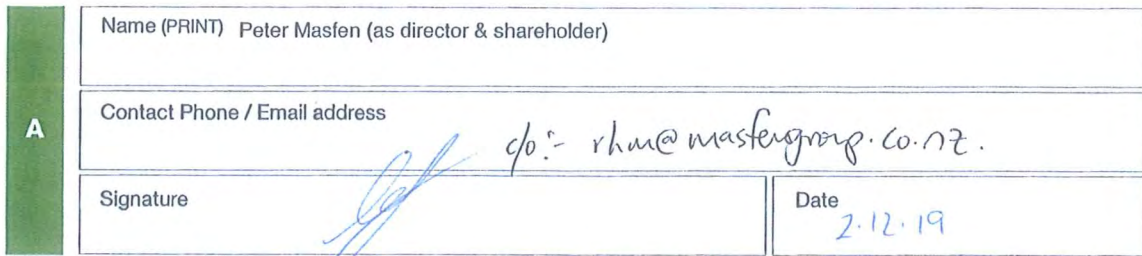 A
Name (PRINT) Peter Masfen (as director & shareholder)
Contact Phone / Email address
c/o:- rhm@masfengroup.co.nz.
Signature
Date
2.12.19